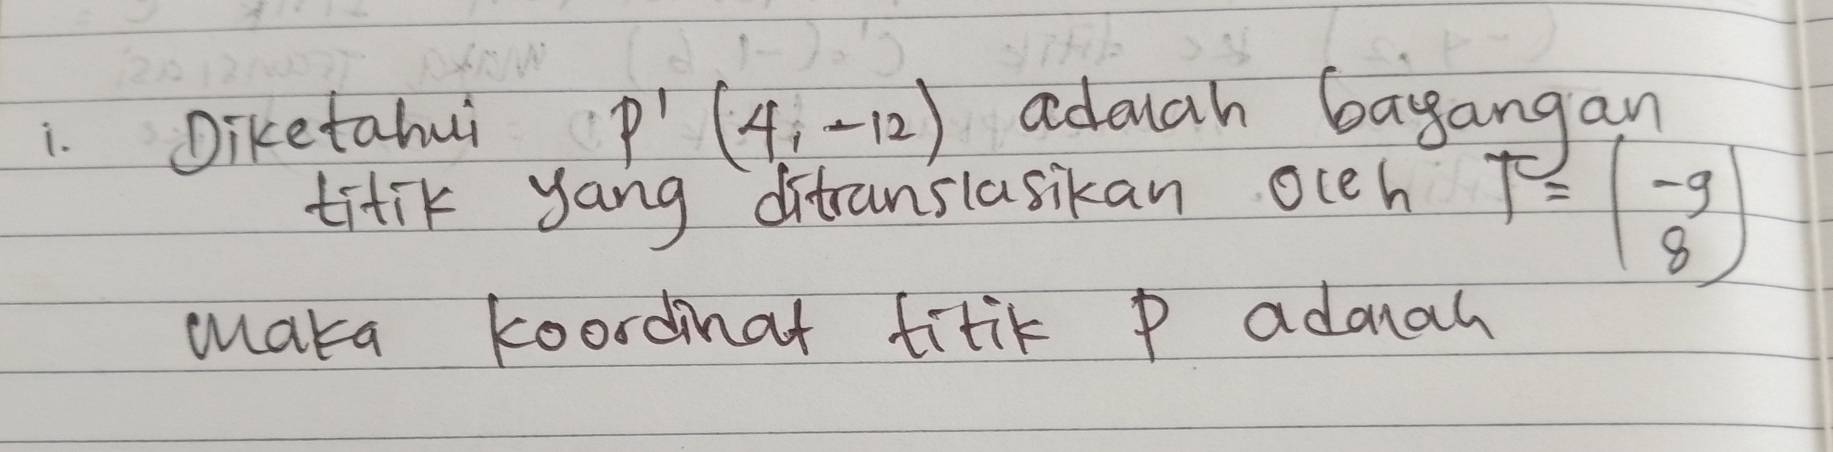 1. Diketahui P' (4, -12) adalah bayangan
titik yang ditranslasikan oleh T = (-9
8)
maka koordinat titik P adalah